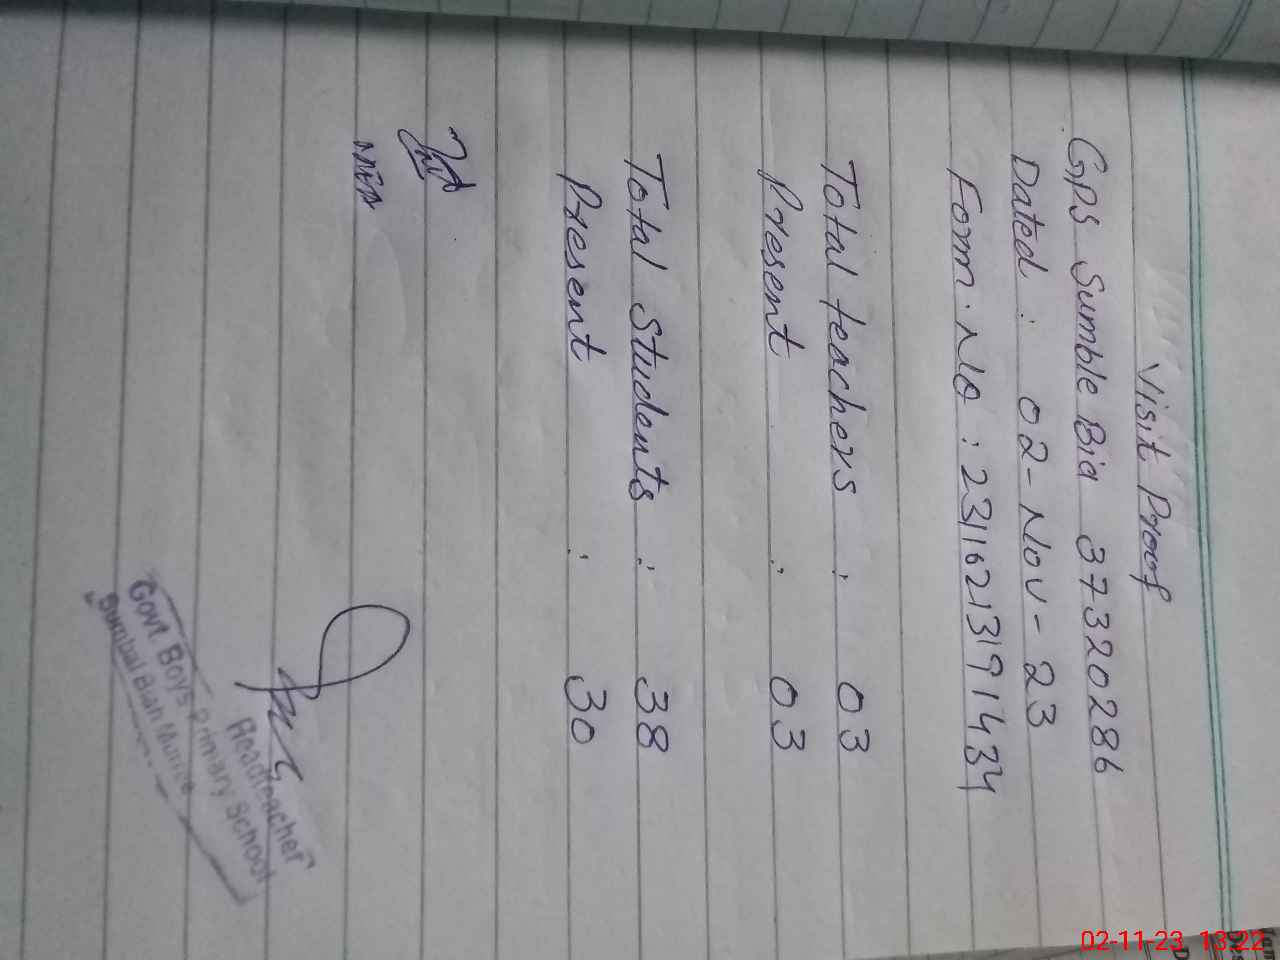 Visit Proof
GPS Sumble Bia 37320286
Dated : 02-Nov-23
Form No : 23116213191434
Total teachers : 03
Present : 03
Total Students : 38
Present : 30
Headteacher
Govt Boys Primary School
Sumbal Biah Murree
02-11-23 13:22